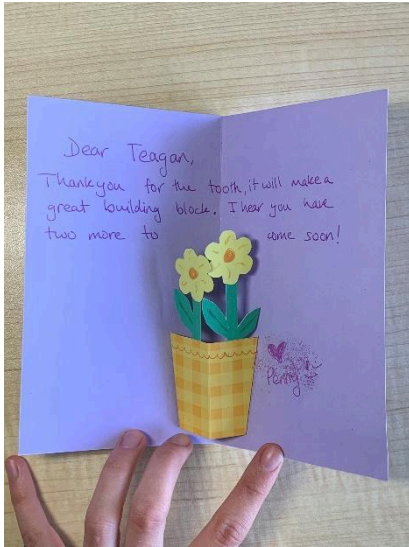 Dear Teagan,
Thankyou for the tooth, it will make a
great building block. I hear you have
two more to come soon!